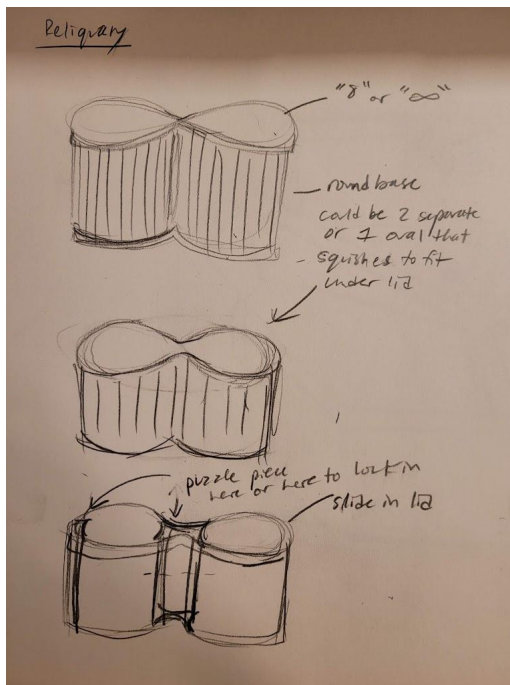 Reliquary
"8" or "∞"
round base
could be 2 separate
or 1 oval that
squishes to fit
under lid
puzzle piece
here or here to lock in
slide in lid